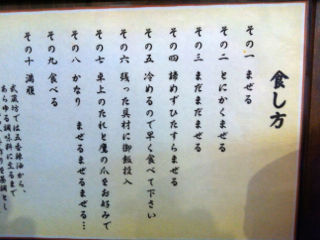 食し方
その一 まぜる
その二 とにかくまぜる
その三 まだまだまぜる
その四 諦めずひたすらまぜる
その五 冷めるので早く食べて下さい
その六 残った具材に御飯投入
その七 卓上のたれと鷹の爪をお好みで
その八 かなり まぜるまぜるまぜる…
その九 食べる
その十 満腹
武蔵坊では五香辣油から、
あらゆる調味料に至るまで